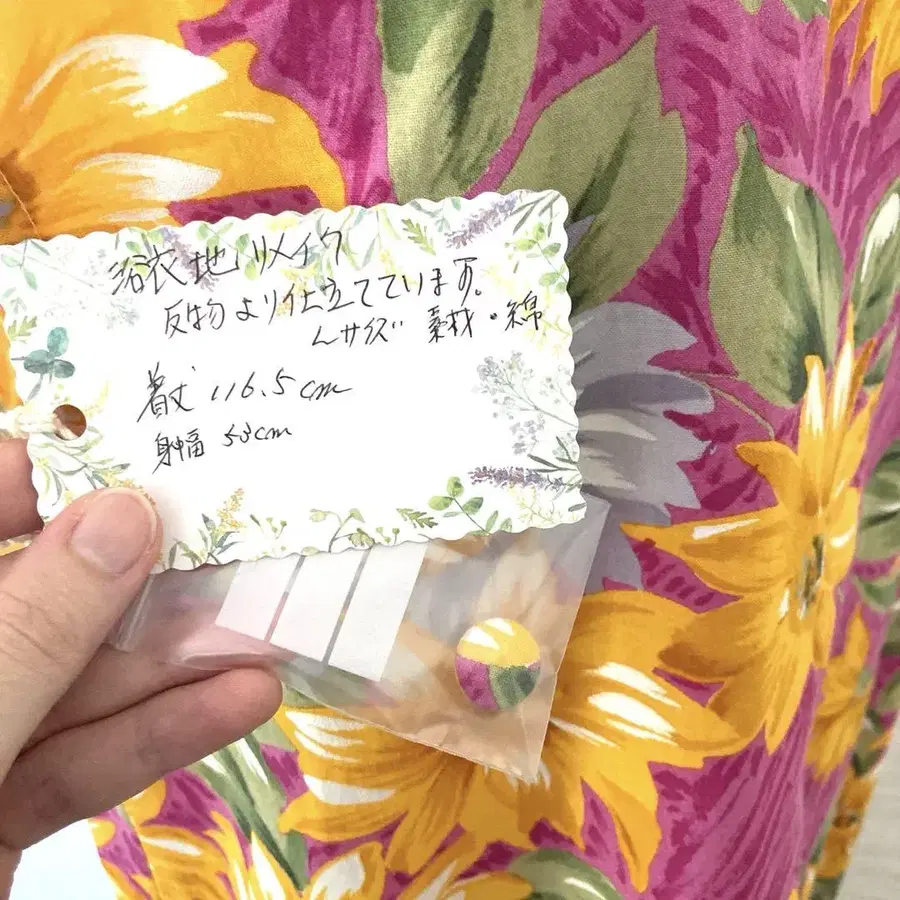 浴衣地リメイク
反物より仕立てています。
Lサイズ 素材・綿
着丈 116.5cm
身幅 53cm